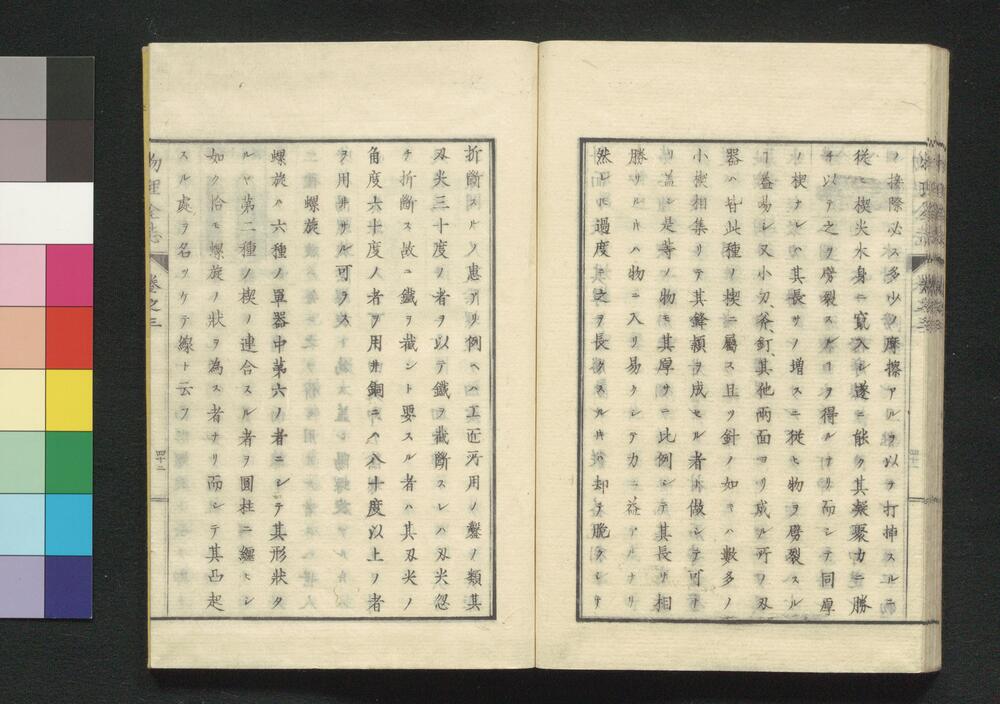 ノ接際必ス多少ノ摩擦アルヲ以テ打揷スルニ
從ヒ楔尖木身ニ竄入シ遂ニ能ク其凝聚力ニ勝
チ以テ之ヲ劈裂スルヿヲ得ルナリ而シテ同厚
ノ楔ナレハ其長サノ増スニ從ヒ物ヲ劈裂スル
ヿ益易シ又小刀、斧、釘、其他兩面ヨリ成ル所ノ刃
器ハ皆此種ノ楔ニ屬ス且ツ針ノ如キハ數多ノ
小楔相集リテ其鋒頴ヲ成セル者ト做シテ可ナ
リ蓋シ是等ノ物モ其厚サニ比例シテ其長サ相
勝サル𪜈ハ物ニ入リ易クシテ力ニ益アルナリ
然レ𪜈過度之ヲ長クスル𪜈ハ却テ脆クシテ
折斷スルノ患アリ例ヘハ工匠所用ノ鑿ノ類其
刃尖三十度ノ者ヲ以テ鐵ヲ截斷スレハ刃尖忽
チ折斷ス故ニ鐵ヲ截ント要スル者ハ其刃尖ノ
角度六十度ノ者ヲ用井銅ニハ八十度以上ノ者
ヲ用井サル可ラス
螺旋
螺旋ハ六種ノ單器中第六ノ者ニシテ其形狀タ
ルヤ第二種ノ楔ノ連合スル者ヲ圓柱ニ纏ヒシ
如ク恰モ螺旋ノ狀ヲ為ス者ナリ而シテ其凸起
スル處ヲ名ツケテ線ト云フ
物理全志
卷之三
四十二